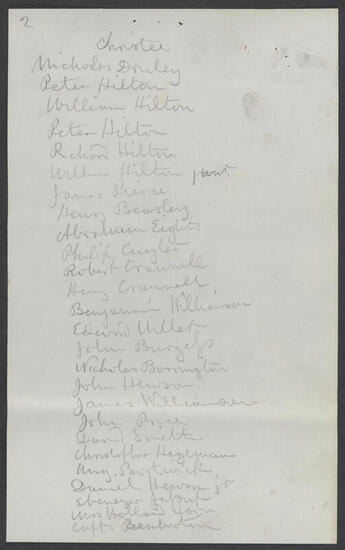 2
Christee
Nicholas Donley
Peter Hilton
William Hilton
Peter Hilton
Richord Hilton
William Hilton junr.
James Pierce
Henry Beasley
Abraham Eights
Philip Cuyler
Robert Crannell
Henry Crannell
Benjamin Williamson
Edward Willet
John Burgess
Nicholas Borrington
John Hewson
James Williamson
John Price
David Smith
Christopher Hegeman
Aug. Bostwick
Daniel Hewson jr
Ebenezer Jessup
Mrs Holland
Capt Pemberton